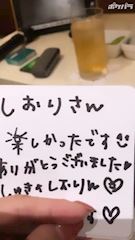 ポケパラ
しおりさん
楽しかったです
ありがとうございました
しおりん